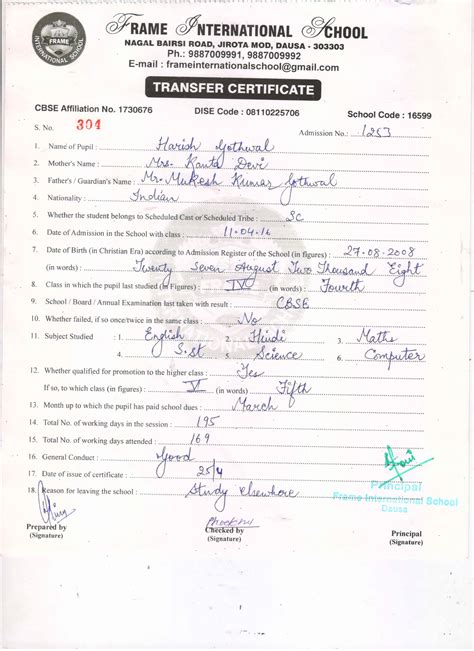 FRAME INTERNATIONAL SCHOOL
NAGAL BAIRSI ROAD, JIROTA MOD, DAUSA - 303303
Ph.: 9887009991, 9887009992
E-mail : frameinternationalschool@gmail.com
FRAME
INTERNATIONAL SCHOOL
TRANSFER CERTIFICATE
CBSE Affiliation No. 1730676 DISE Code : 08110225706 School Code : 16599
S. No. 304 Admission No.: 1253
1. Name of Pupil : Harish Gothwal
2. Mother's Name : Mrs. Kanta Devi
3. Father's / Guardian's Name : Mr. Mukesh Kumar Gothwal
4. Nationality : Indian
5. Whether the student belongs to Scheduled Cast or Scheduled Tribe : SC
6. Date of Admission in the School with class : 11-04-16
7. Date of Birth (in Christian Era) according to Admission Register of the School (in figures) : 27-08-2008
(in words) : Twenty Seven August Two Thousand Eight
8. Class in which the pupil last studied (in Figures) : IV (in words) : Fourth
9. School / Board / Annual Examination last taken with result : CBSE
10. Whether failed, if so once/twice in the same class : No
11. Subject Studied : 1. English 2. Hindi 3. Maths
4. S.St 5. Science 6. Computer
12. Whether qualified for promotion to the higher class : Yes
If so, to which class (in figures) : V (in words) : Fifth
13. Month up to which the pupil has paid school dues : March
14. Total No. of working days in the session : 195
15. Total No. of working days attended : 169
16. General Conduct : Good
17. Date of issue of certificate : 25/4
18. Reason for leaving the school : Study elsewhere
Principal
Frame International School
Dausa
Prepared by Checked by Principal
(Signature) (Signature) (Signature)